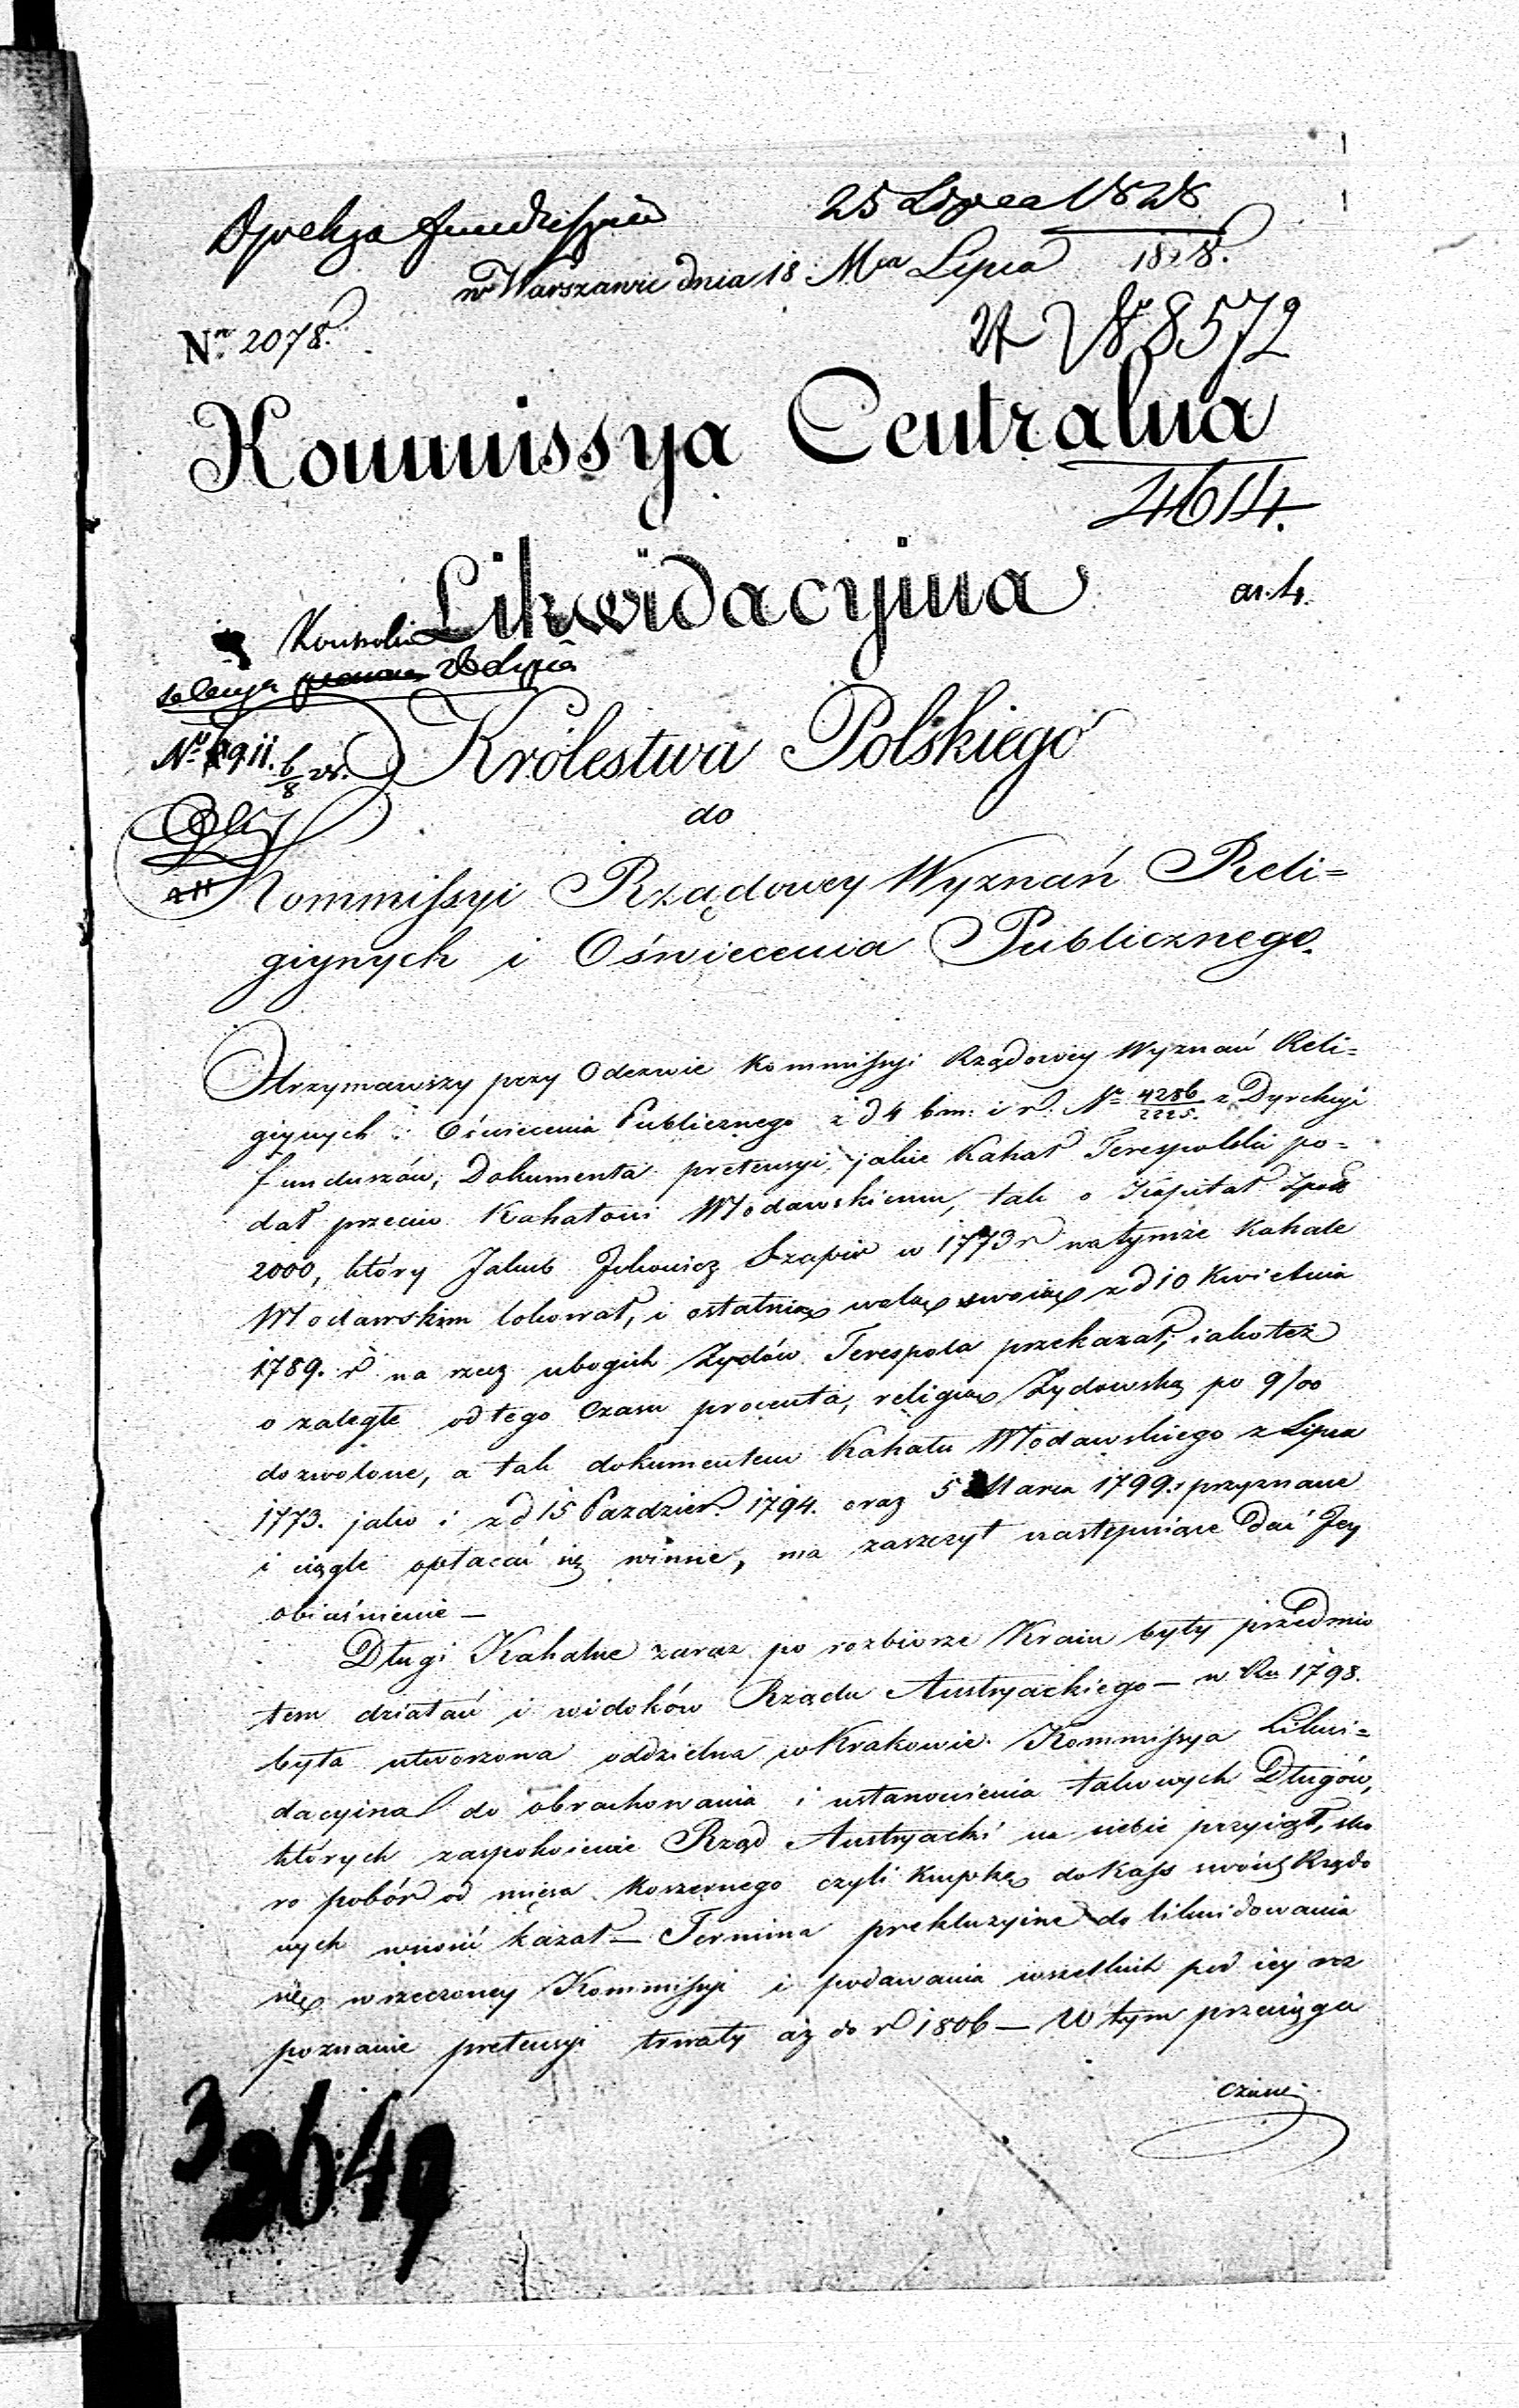 Dyrekcya Funduszów 25 Lipca 1828
w Warszawie dnia 18 Mca Lipca 1828.
Nro 2078.
Nr 8572
Kommissya Centralna
4614.
Likwidacyjna
ar. 4.
28 Lipca
Królestwa Polskiego
do
Kommissyi Rządowey Wyznań Reli=
giynych i Oświecenia Publicznego.
Otrzymawszy przy Odezwie Kommissyi Rządowey Wyznań Reli=
giynych i Oświecenia Publicznego z d 4 b m: i r. Nro 4286/2225. z Dyrekcyi
funduszów, Dokumenta pretensyi, jakie Kahał Terespolski po=
dał przeciw Kahałowi Włodawskiemu, tak o Kapitał Zpol
2000, który Jakub Szapir w 1773 r na tymże Kahale
Włodawskim lokował, i ostatnią wolą swoią z d 10 Kwietnia
1789. r na rzecz ubogich Żydów Terespola przekazał, iakoteż
o zaległe od tego Czasu procenta, religią Żydowską po 9/00
dozwolone, a tak dokumentem Kahału Włodawskiego z Lipca
1773. jako i z d 15 Paździer. 1794. oraz 5 Marca 1799. r przyznane
i ciągle opłacać się winne, ma zaszczyt następuiące dać Jey
obiaśnienie —
Długi Kahalne zaraz po rozbiorze Kraiu były przedmio
tem działań i widoków Rządu Austryackiego — w Ru 1798.
była utworzona oddzielna w Krakowie Kommissya Likwi=
dacyjna do obrachowania i ustanowienia takowych Długów,
których zaspokoienie Rząd Austryacki na siebie przyiął, sko
ro pobór od mięsa koszernego czyli Krupkę do Kass swoich Rządo
wych wnosić kazał — Termina prekluzyine do likwidowania
się w rzeczoney Kommissyi i podawania wszelkich pod iey roz
poznanie pretensyi trwały aż do r 1806 — W tym przeciągu
czasu
3
2649